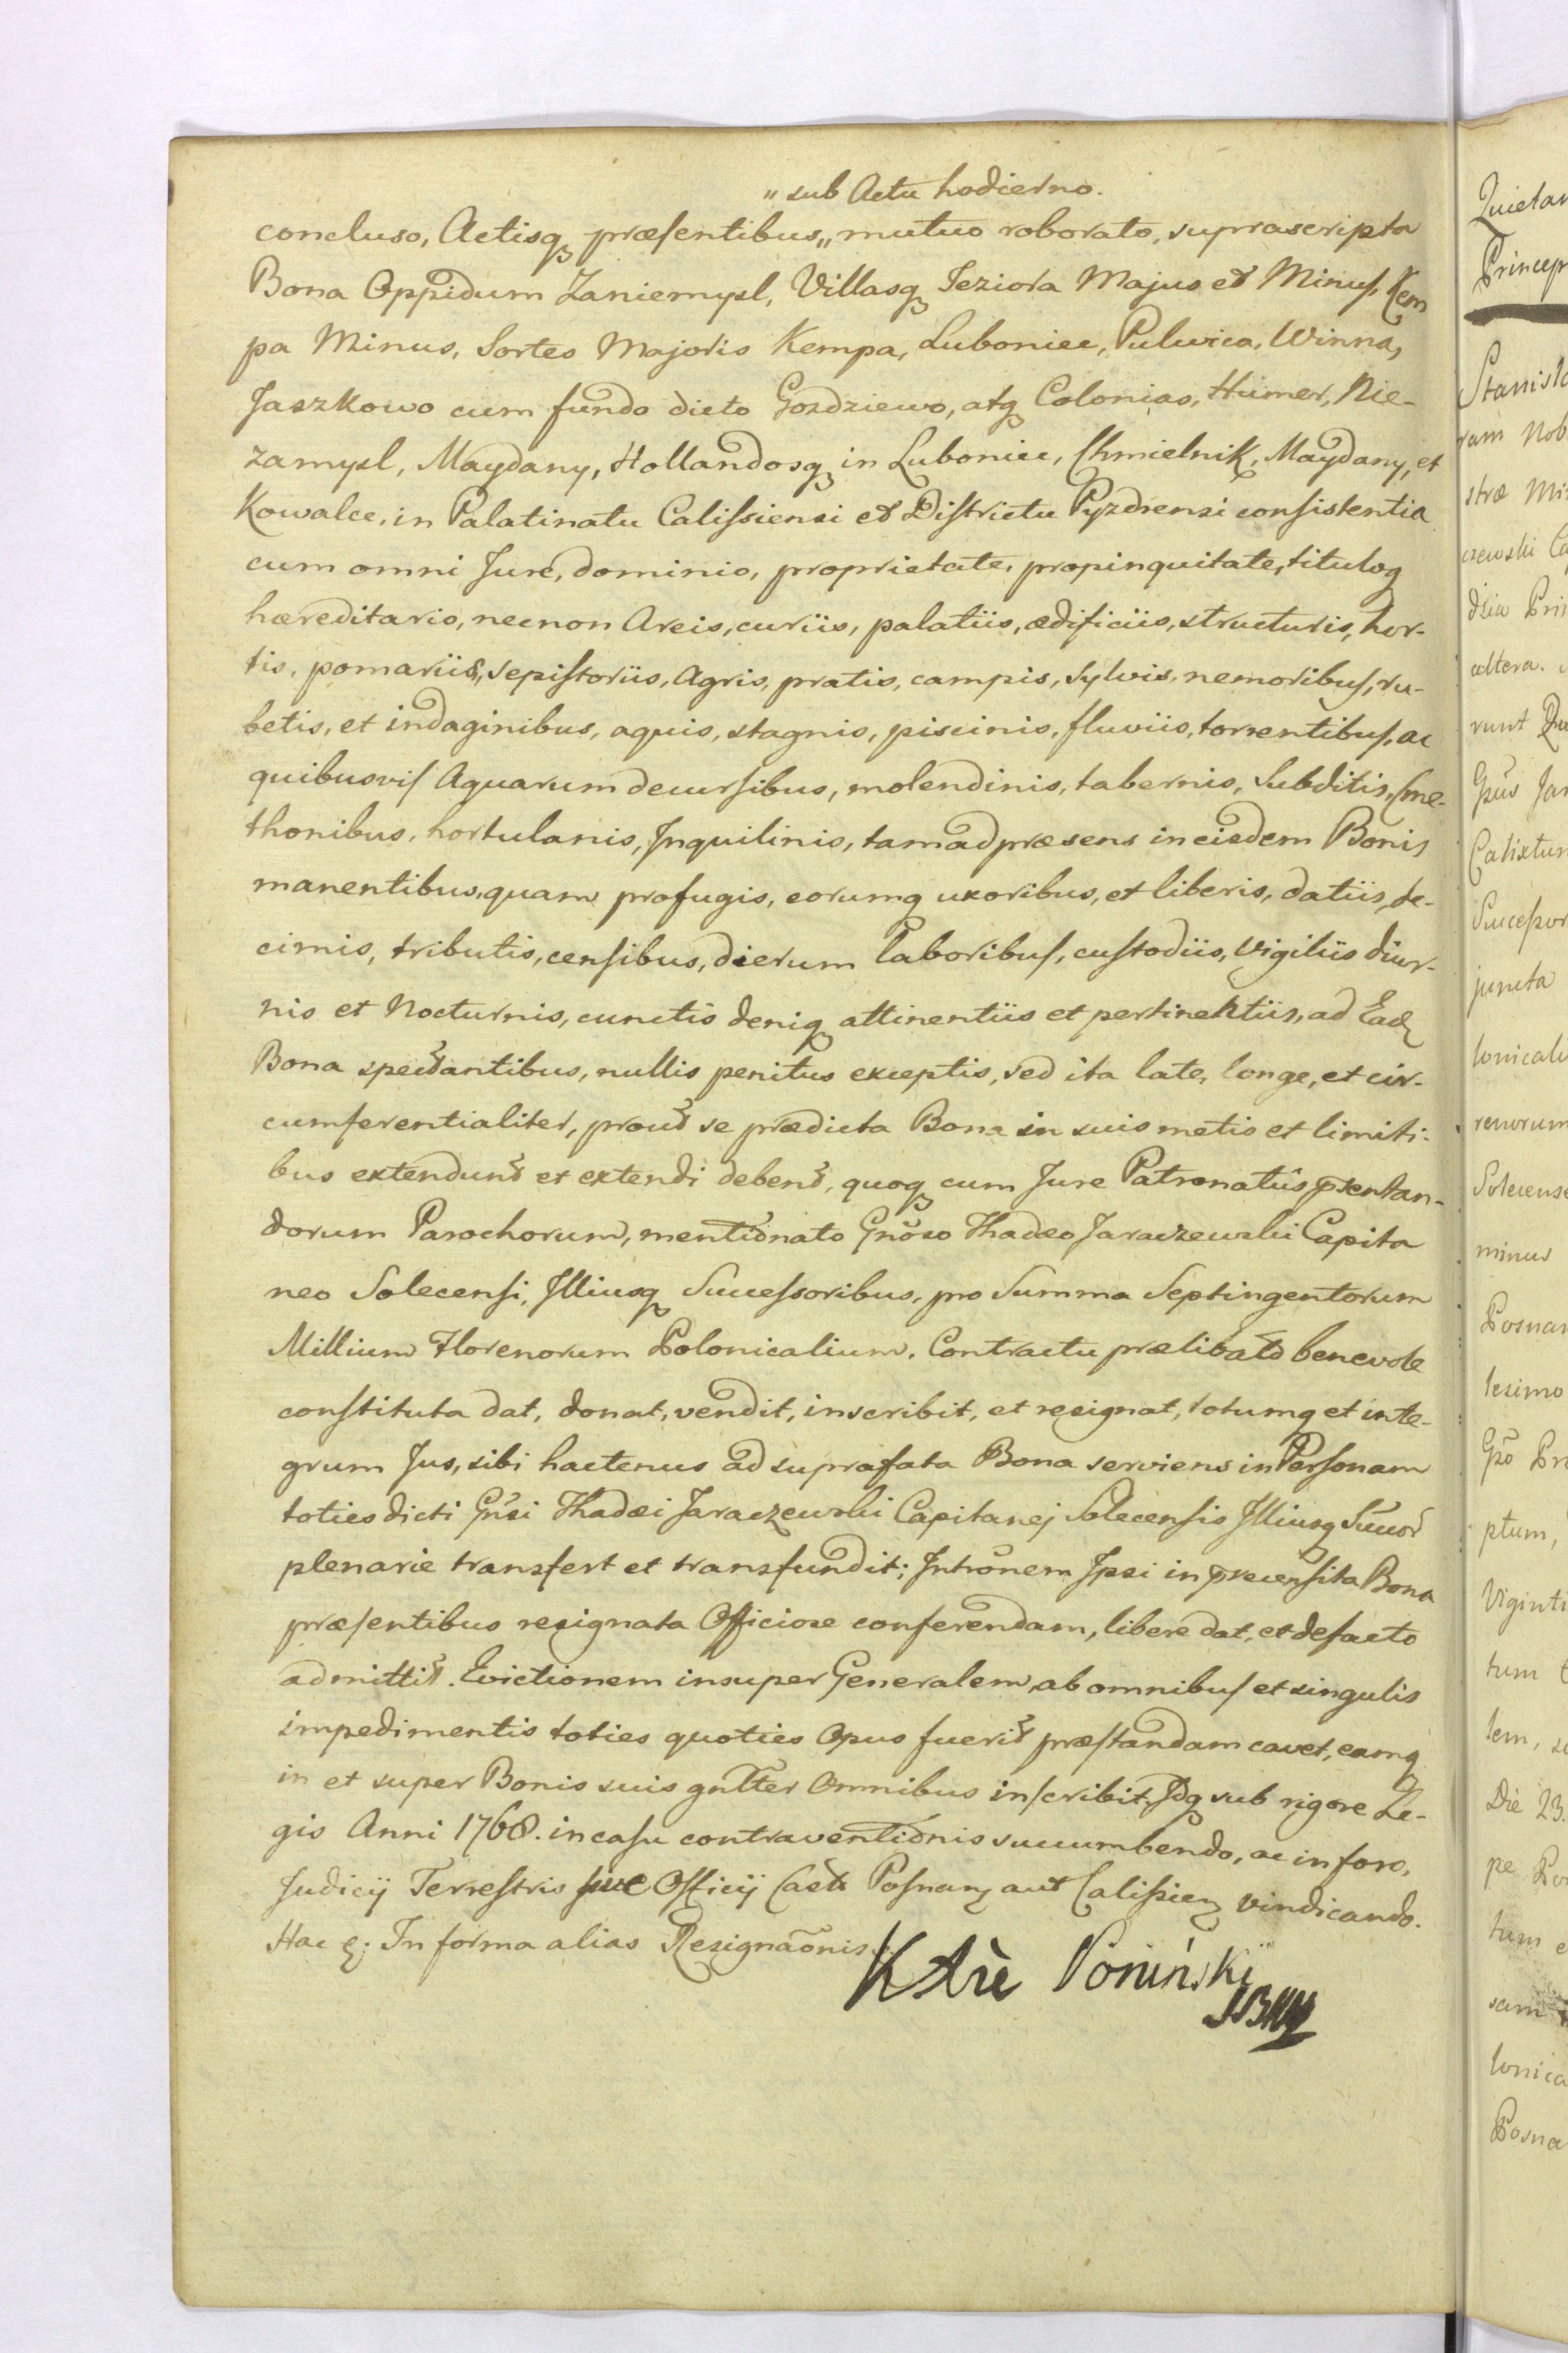 „ sub Actu hodierno.
concluso, Actisq præsentibus „ mutuo roborato, suprascripta
Bona Oppidum Zaniemysl, Villasq Jeziora Majus et Minus, Kem
pa Minus, Sortes Majoris Kempa, Luboniec, Pulwica, Winna,
Jaszkowo cum fundo dicto Gozdziewo, atq Colonias, Humer, Nie-
zamysl, Maydany, Hollandosq in Luboniec, Chmielnik, Maydany, et
Kowalce, in Palatinatu Calissiensi et Districtu Pyzdrensi consistentia
cum omni Jure, dominio, proprietate, propinquitate, tituloq
hæreditario, necnon Areis, curiis, palatiis, ædificiis, structuris, hor-
tis, pomariis, sepistoriis, Agris, pratis, campis, sylvis, nemoribus, ru-
betis, et indaginibus, aquis, stagnis, piscinis, fluviis, torrentibus, ac
quibusvis Aquarum decursibus, molendinis, tabernis, Subditis, Cme-
thonibus, hortulanis, Inquilinis, tam ad præsens in eisdem Bonis
manentibus, quam profugis, eorumq uxoribus, et liberis, datiis, de-
cimis, tributis, censibus, dierum laboribus, custodiis, Vigiliis diur-
nis et Nocturnis, cunctis deniq attinentiis et pertinentiis, ad Ead
Bona spectantibus, nullis penitus exceptis, sed ita late, longe, et cir-
cumferentialiter, prout se prædicta Bona in suis metis et limiti-
bus extendunt et extendi debent, quoq cum Jure Patronatûs præsentan-
dorum Parochorum, mentionato Gnoso Thadeo Jaraczewski Capita
neo Solecensi, Illiusq Successoribus, pro Summa Septingentorum
Millium Florenorum Polonicalium. Contractu prælibato benevole
constituta dat, donat, vendit, inscribit, et resignat, totumq et inte-
grum Jus, sibi hactenus ad suprafata Bona serviens in Personam
toties dicti Gnsi Thadæi Jaraczewski Capitanej Solecensis Illiusq Succor
plenarie transfert et transfundit; Introñem Ipsi in præcensita Bona
præsentibus resignata Officiose conferendam, libere dat, et defacto
admittit. Evictionem insuper Generalem ab omnibus et singulis
impedimentis toties quoties Opus fuerit præstandam cavet, eamq
in et super Bonis suis gnlter Omnibus inscribit, Idq sub rigore Le-
gis Anni 1768. in casu contraventionis succumbendo, ac in foro,
Judicij Terrestris sive Officij Castr Posnan aut Calissien vindicando.
Hac q; In forma alias Resignaõnis.
K Xże Poniński